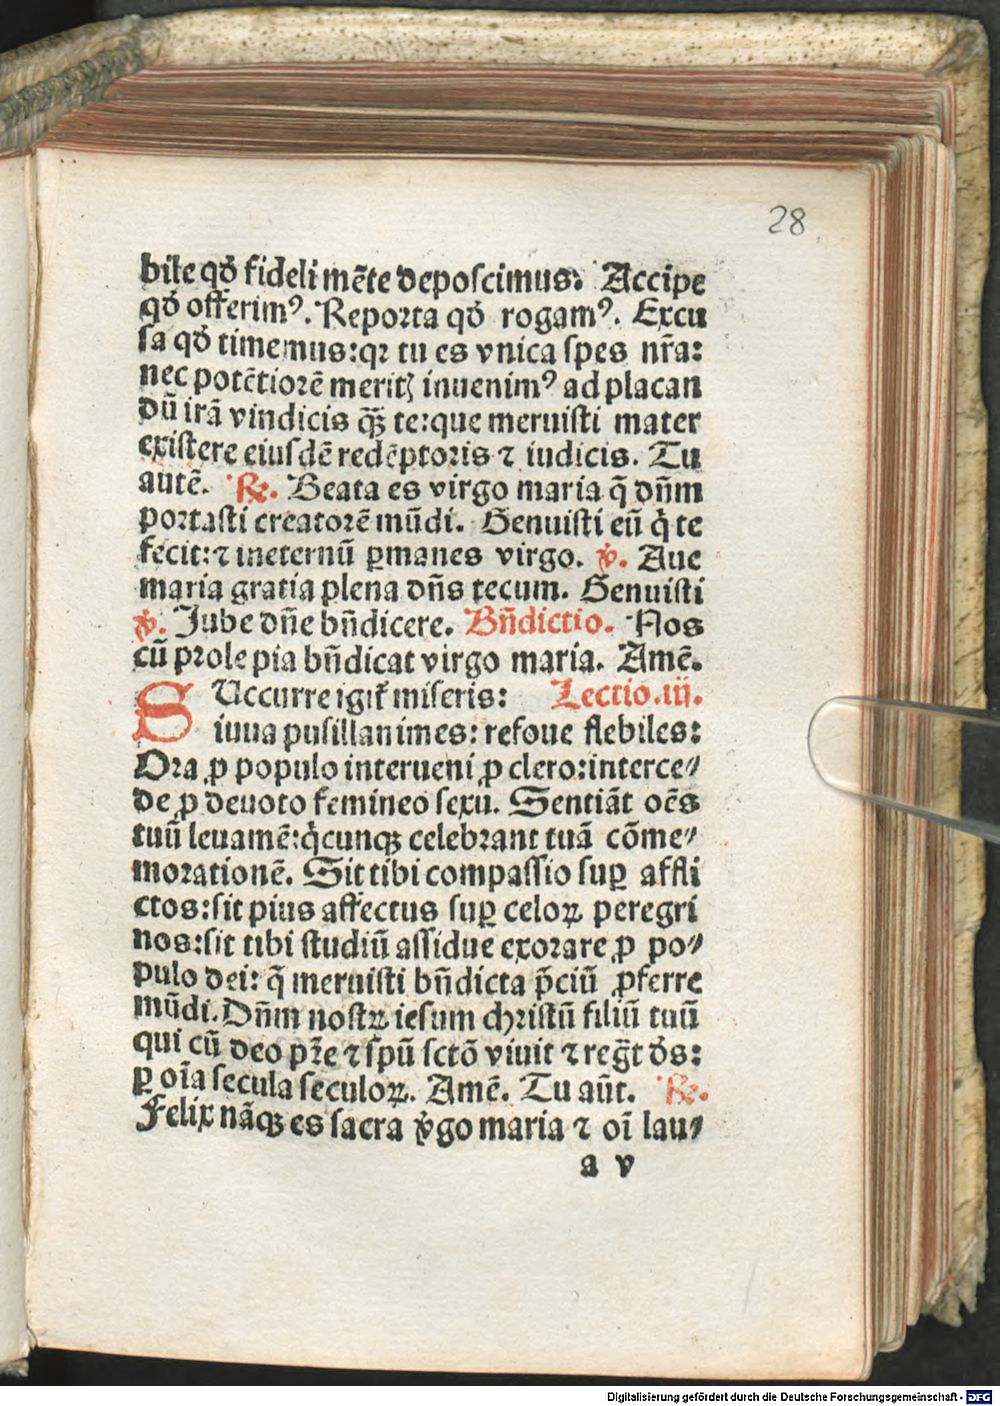 28
bile qď fideli mēte deposcimus. Accipe
qď offerimꝰ. Reporta qď rogamꝰ. Excu
sa qď timemus: qꝛ tu es vnica spes nr̄a:
nec potētiorē meritꝭ inuenimꝰ ad placan
dū irā vindicis q̄ꝫ te: que meruisti mater
existere eiusdē redēptoris ⁊ iudicis. Tu
autē. ℟. Beata es virgo maria q̄ dn̄m
portasti creatorē mūdi. Genuisti eū q̇ te
fecit: ⁊ ineternū ꝑmanes virgo. ℣. Aue
maria gratia plena dn̄s tecum. Genuisti
℣. Jube dn̄e bn̄dicere. Bn̄dictio. Nos
cū prole pia bn̄dicat virgo maria. Amē.
SUccurre igit᷑ miseris: Lectio.iij.
iuua pusillanimes: refoue flebiles:
Ora ꝓ populo interueni ꝓ clero: interce⸗
de ꝓ deuoto femineo sexu. Sentiāt oēs
tuū leuamē: q̇cunqꝫ celebrant tuā cōme⸗
morationē. Sit tibi compassio suꝑ affli
ctos: sit pius affectus suꝑ celoꝝ peregri
nos: sit tibi studiū assidue exorare ꝓ po⸗
pulo dei: q̄ meruisti bn̄dicta p̄ciū ꝓferre
mūdi. Dn̄m nostꝝ iesum christū filiū tuū
qui cū deo pr̄e ⁊ spū sctō viuit ⁊ reḡt ds̄:
ꝑ oīa secula seculoꝝ. Amē. Tu aūt. ℟.
Felix nāqꝫ es sacra v̇go maria ⁊ oī lau⸗
a v
Digitalisierung gefördert durch die Deutsche Forschungsgemeinschaft - DFG